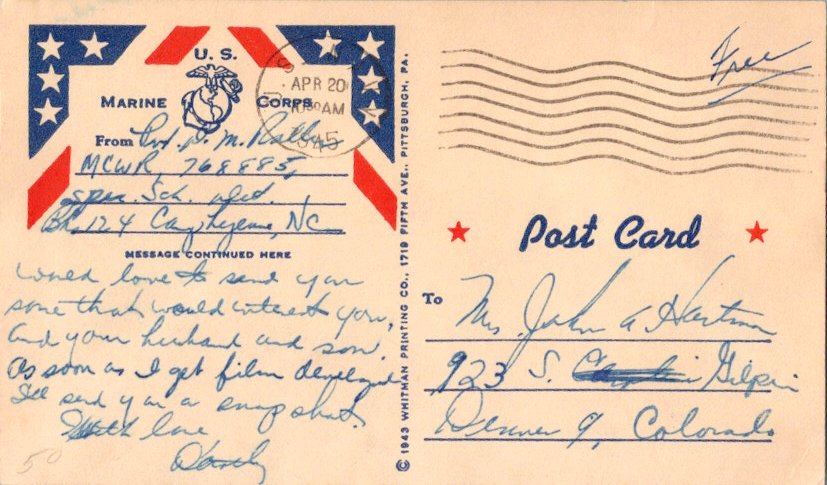 U. S.
MARINE CORPS
U. S.
APR 20
1030 AM
1945
From Pvt. D. M.
MCWR, 768885,
Spec. Sch. Det.
Bk. 124 Camp Lejeune, NC
MESSAGE CONTINUED HERE
would love to send you
some that would interest you,
and your husband and son.
As soon as I get film developed
I'll send you a snapshot.
With love
Dorothy
50
© 1943 WHITMAN PRINTING CO., 1719 FIFTH AVE., PITTSBURGH, PA.
Free
Post Card
To Mrs. John A. Hartman
923 S. Gilpin
Denver 9, Colorado